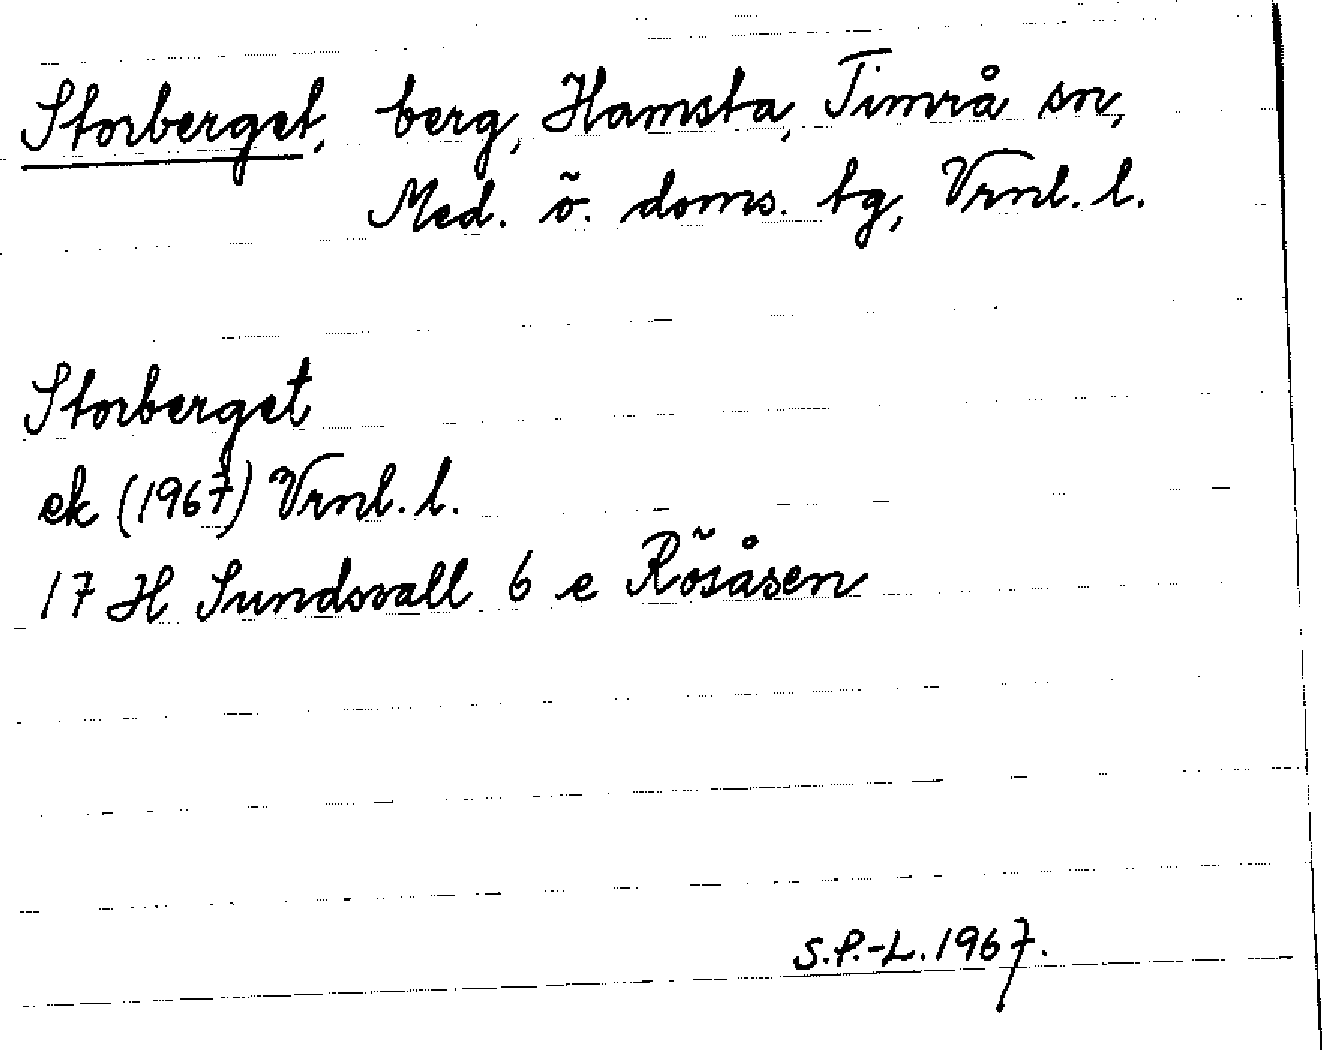 Storberget, berg, Hamsta, Timrå sn,
Med. ö. doms. tg, Vrnl. l.
Storberget
ek (1967) Vrnl. l.
17 H Sundsvall 6 e Rösåsen
S.P.-L. 1967.